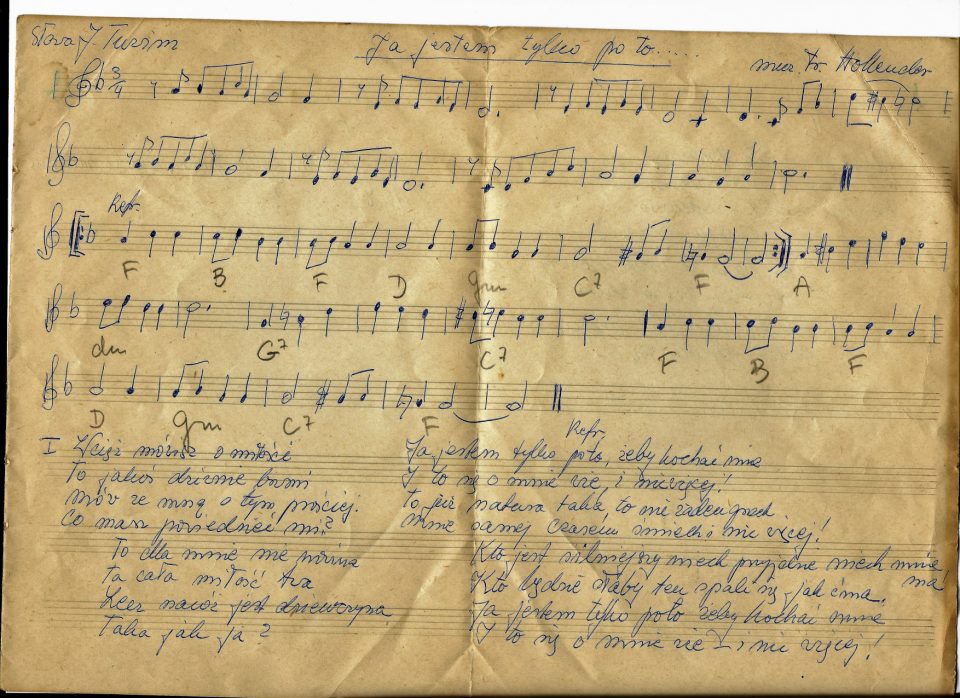 Słowa J. Tuwim
Ja jestem tylko po to.....
muz. Fr. Hollender
Refr.
F B F D gm C7 F A
dm G7 C7 F B F
D gm C7 F
I Wciąż mówisz o miłości
To jakoś dziwnie brzmi
mów ze mną o tym prościej.
Co masz powiedzieć mi?
To dla mnie nie nowina
ta cała miłość twa
Lecz na cóż jest dziewczyna
Taka jak ja?
Refr.
Ja jestem tylko poto, żeby kochać mnie
I to się o mnie wie, i nic więcej!
to już natura taka, to nie żaden grzech
mnie samej czasem śmiech i nic więcej!
Kto jest silniejszy niech przyjdzie niech mnie
ma
Kto będzie słaby ten spali się jak ćma.
Ja jestem tylko poto żeby kochać mnie
I to się o mnie wie i nic więcej!